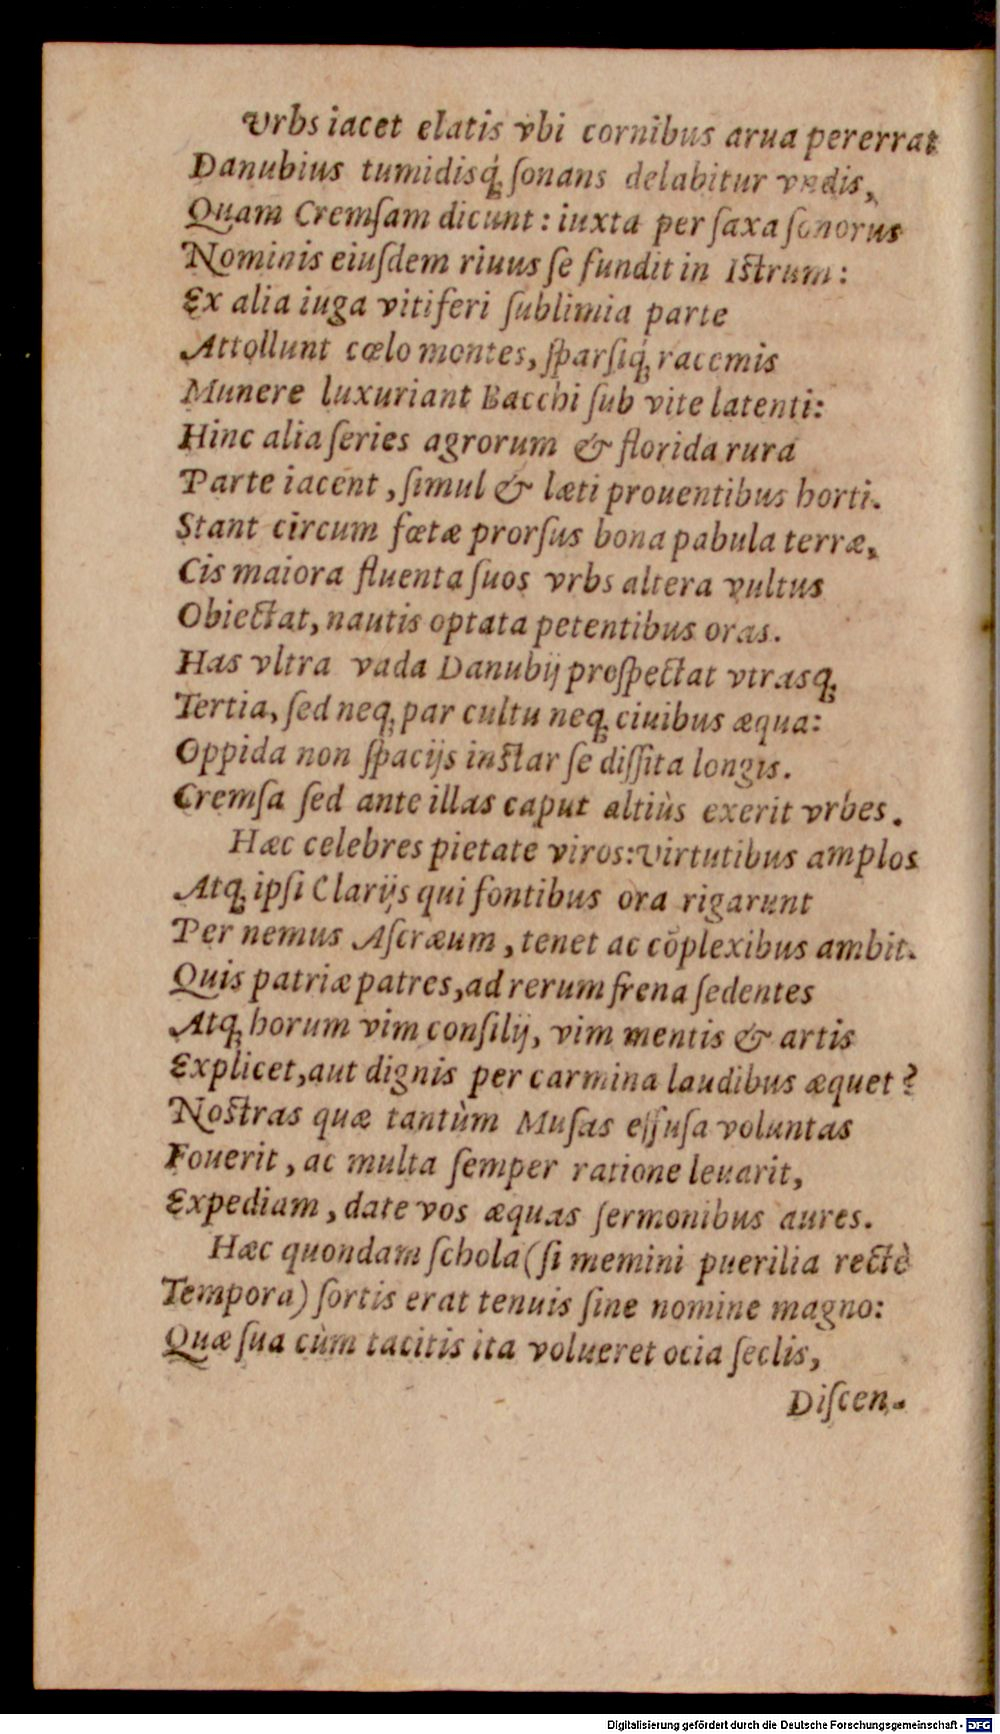 Vrbs iacet elatis vbi cornibus arua pererrat
Danubius tumidisq́; ſonans delabitur vndis,
Quam Cremſam dicunt: iuxta per ſaxa ſonorus
Nominis eiuſdem riuus ſe fundit in Iſtrum:
Ex alia iuga vitiferi ſublimia parte
Attollunt cœlo montes, ſparſiq́; racemis
Munere luxuriant Bacchi ſub vite latenti:
Hinc alia ſeries agrorum & florida rura
Parte iacent, ſimul & læti prouentibus horti.
Stant circum fœtæ prorſus bona pabula terræ,
Cis maiora fluenta ſuos vrbs altera vultus
Obiectat, nautis optata petentibus oras.
Has vltra vada Danubij proſpectat vtrasq;
Tertia, ſed neq; par cultu neq; ciuibus æqua:
Oppida non ſpacijs inſtar ſe diſſita longis.
Cremſa ſed ante illas caput altiùs exerit vrbes.
Hæc celebres pietate viros: Virtutibus amplos
Atq; ipſi Clarijs qui fontibus ora rigarunt
Per nemus Aſcræum, tenet ac cōplexibus ambit.
Quis patriæ patres, ad rerum frena ſedentes
Atq; horum vim conſilij, vim mentis & artis
Explicet, aut dignis per carmina laudibus æquet?
Noſtras quæ tantùm Muſas effuſa voluntas
Fouerit, ac multa ſemper ratione leuarit,
Expediam, date vos æquas ſermonibus aures.
Hæc quondam ſchola (ſi memini puerilia rectè
Tempora) ſortis erat tenuis ſine nomine magno:
Quæ ſua cùm tacitis ita volueret ocia ſeclis,
Diſcen-
Digitalisierung gefördert durch die Deutsche Forschungsgemeinschaft - DFG